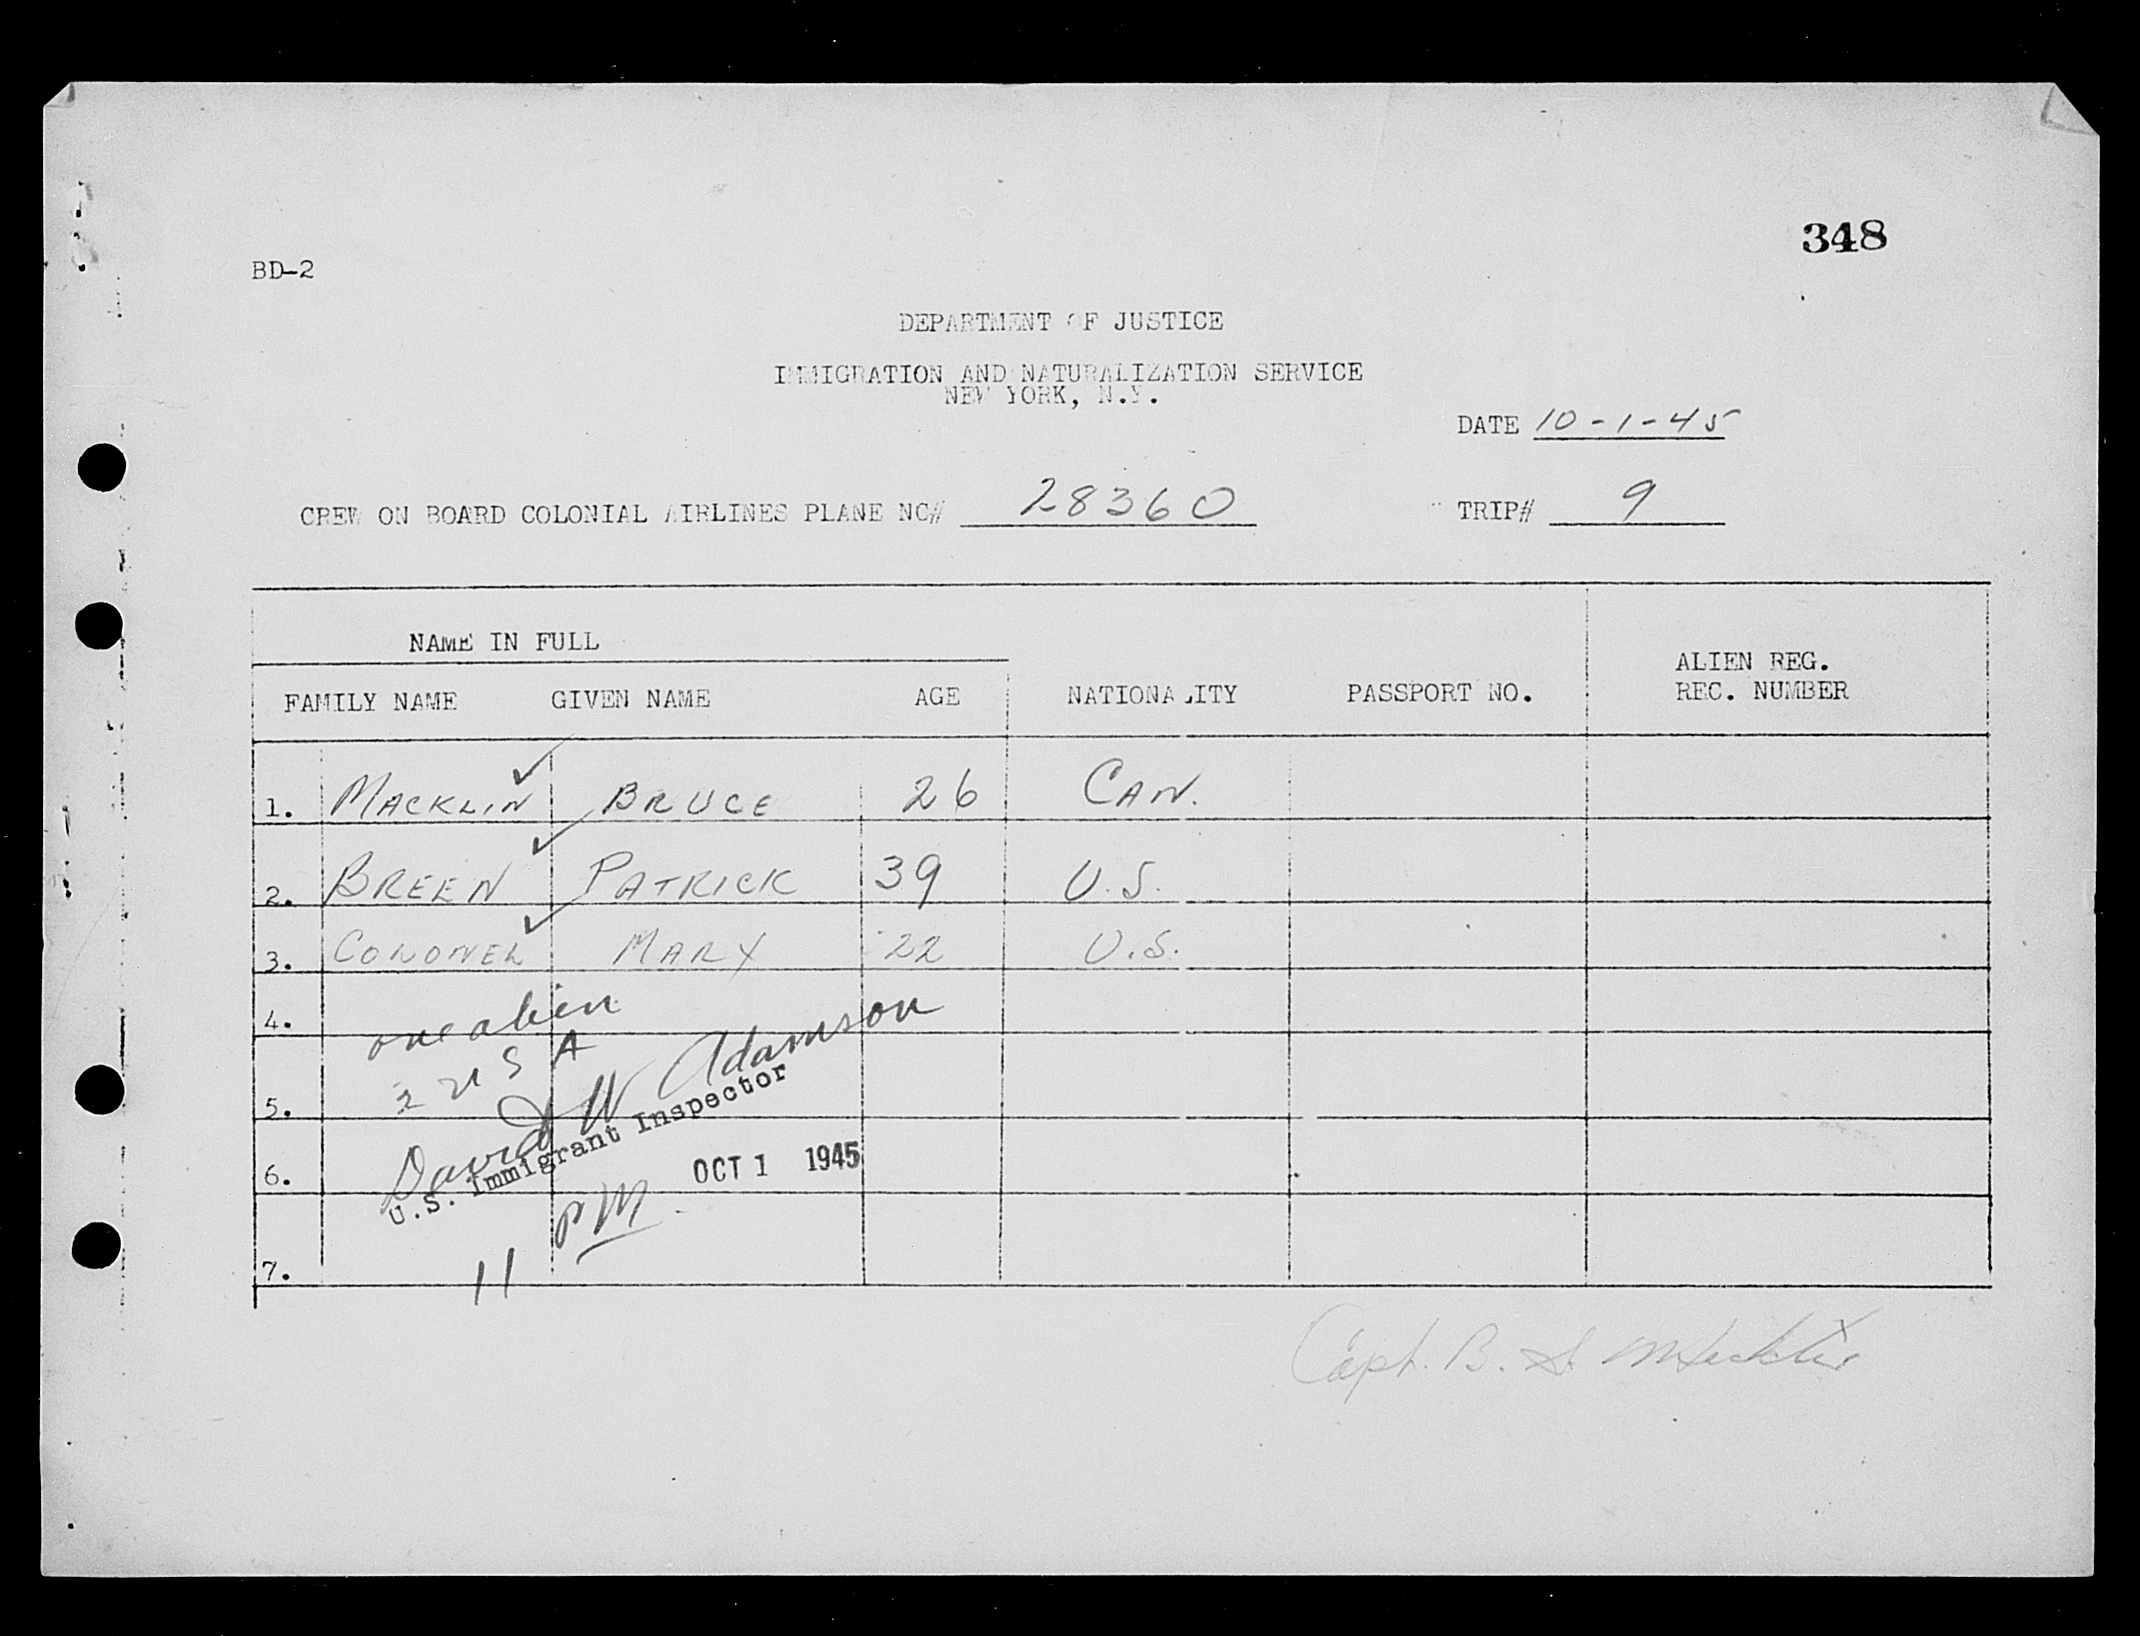 348
BD-2
DEPARTMENT OF JUSTICE
IMMIGRATION AND NATURALIZATION SERVICE
NEW YORK, N.Y.
DATE 10-1-45
CREW ON BOARD COLONIAL AIRLINES PLANE NC# 28360 TRIP# 9
NAME IN FULL
ALIEN REG.
FAMILY NAME GIVEN NAME AGE NATIONALITY PASSPORT NO. REC. NUMBER
1. MACKLIN BRUCE 26 CAN.
2. BREEN PATRICK 39 U.S.
3. MARY 22 U.S.
4. one alien
2 USA
5.
David W Adamson
U.S. Immigrant Inspector
6. OCT 1 1945
11 PM
7.
Capt. B. S. Macklin